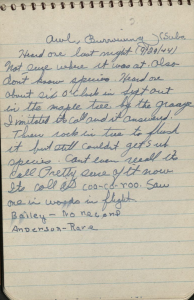 ?
Owl, Burrowing
Heard one last night (9/20/44)
Not sure where it was at. Also
dont know species. Heard one
about six o'clock in fept out
in the maple tree by the garage
I imitated its call and it answered.
Threw rock in tree to flush
it but still couldnt get its
species. Cant even recall its
call. Pretty sure of it now
Its call is coo-co-roo. Saw
one in woods in flight
Bailey - No record
Anderson - Rare